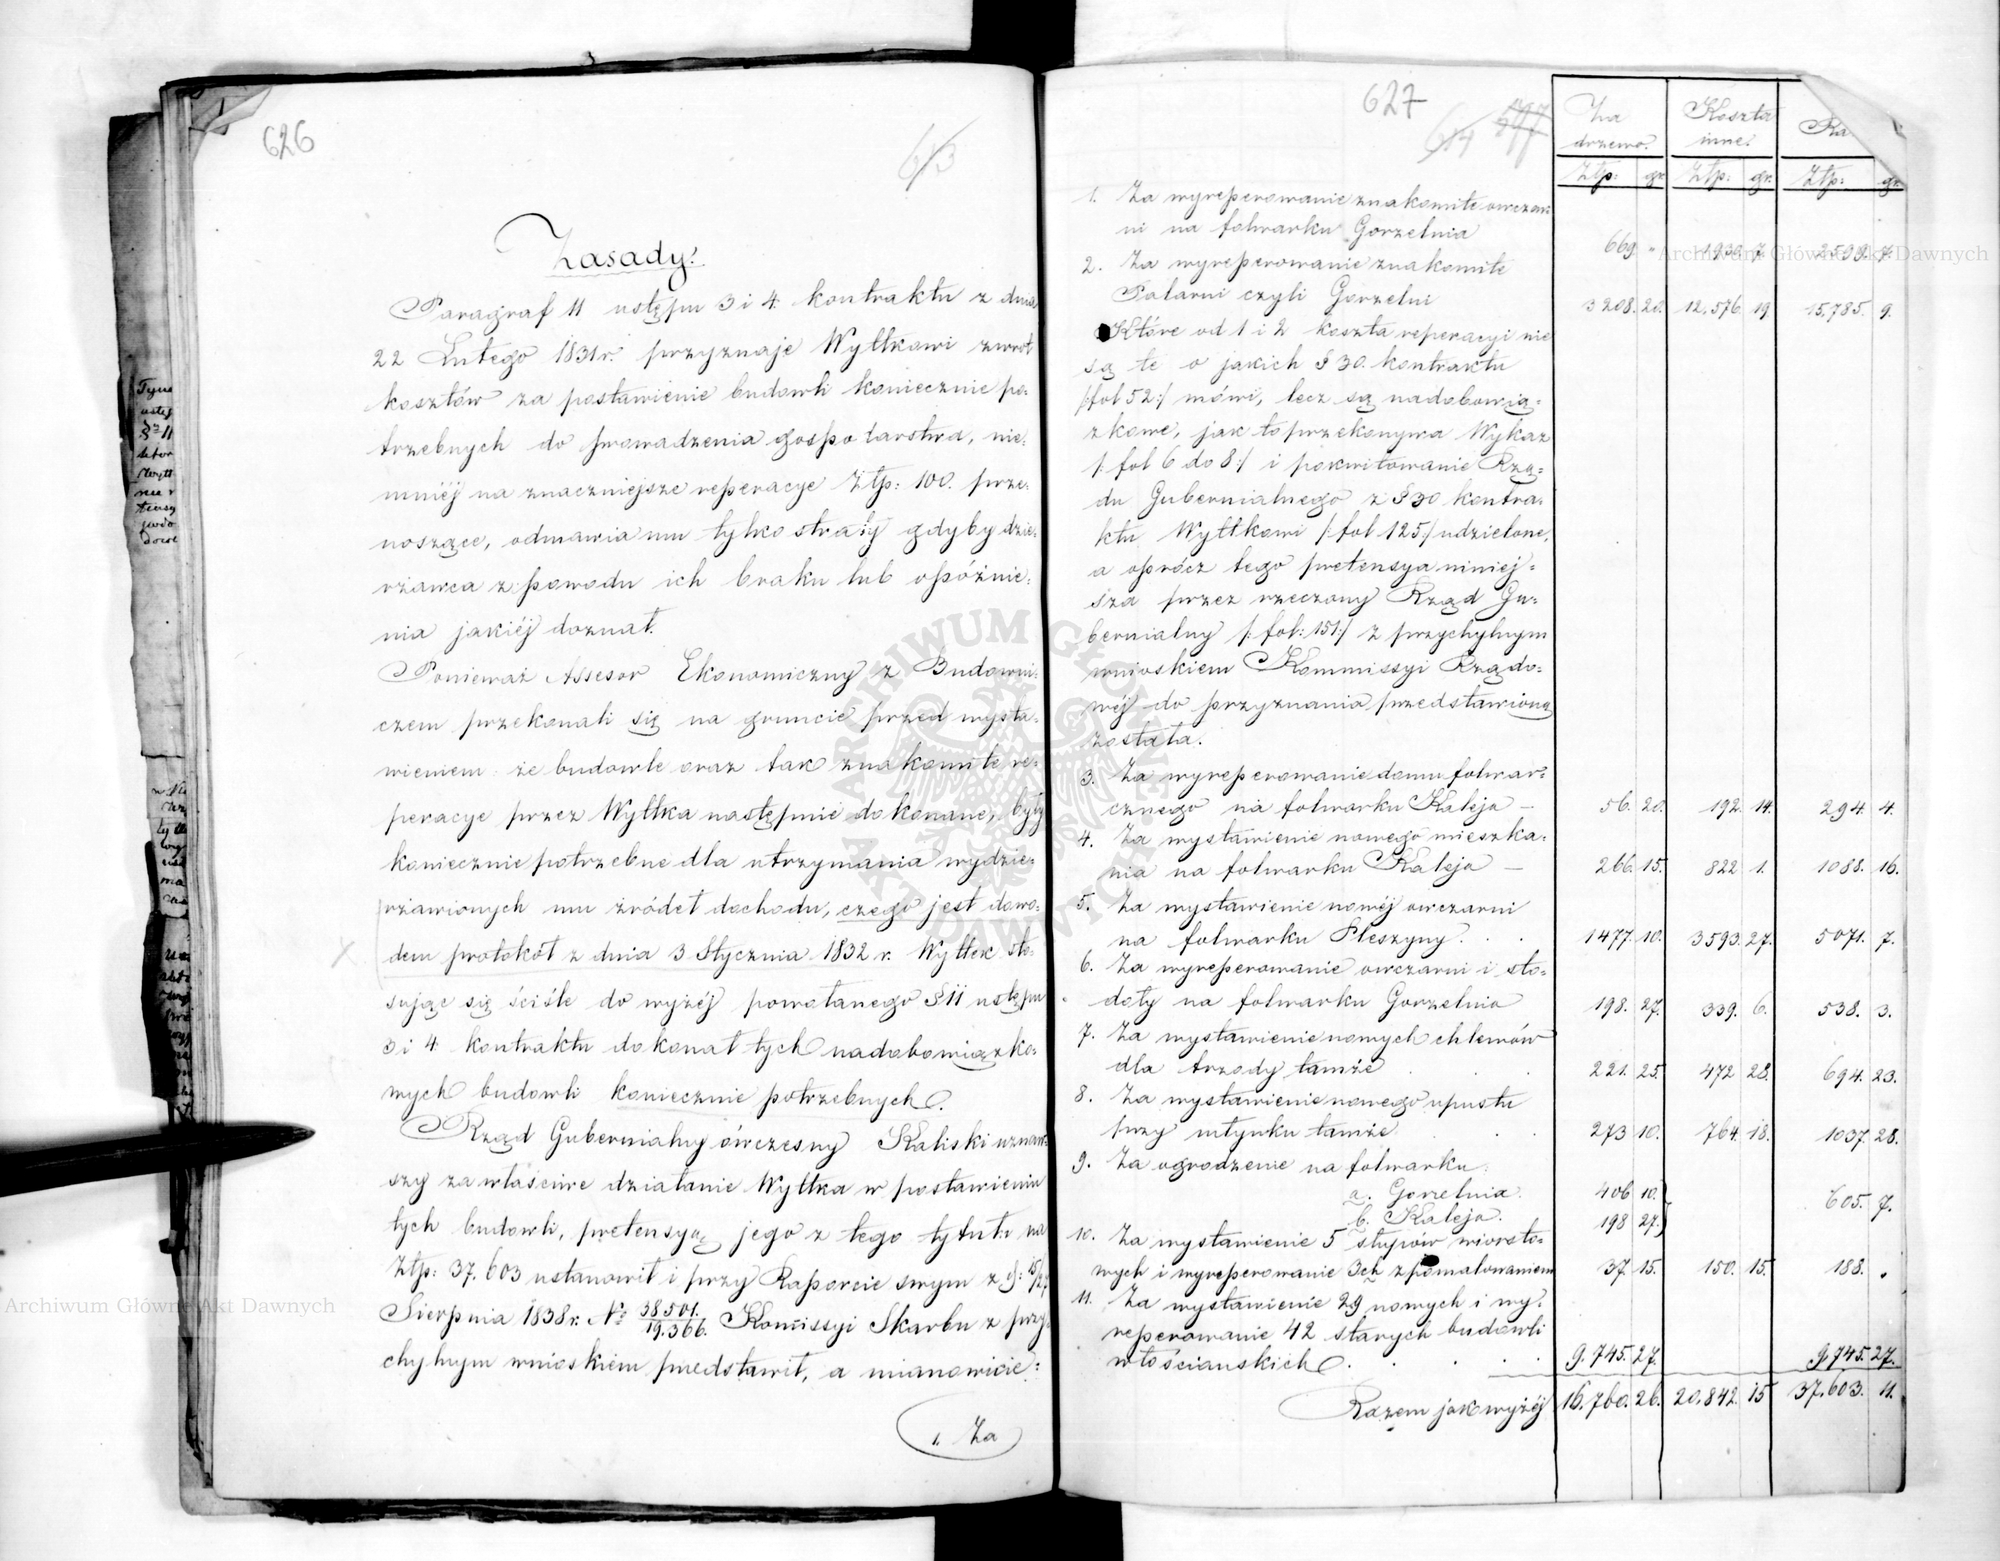 626
613
Zasady.
Paragraf 11 ustępu 3 i 4 kontraktu z dnia
22 Lutego 1831 r. przyznaje Wyłkowi zwrot
kosztów za postawienie budowli koniecznie po-
trzebnych do prowadzenia gospodarstwa, nie-
mniéj na znaczniejsze reperacye Złp: 100. prze-
noszące, odmawia mu tylko straty gdyby dzie-
rżawca z powodu ich braku lub opóźnie-
nia jakiéj doznał.
Ponieważ Assesor Ekonomiczny z Budowni-
czem przekonali się na gruncie przed wysta-
wieniem że budowle oraz tak znakomite re-
peracye przez Wyłka następnie dokonane, były
koniecznie potrzebne dla utrzymania wydzie-
rżawionych mu źródeł dochodu, czego jest dowo-
dem protokół z dnia 3 Stycznia 1832 r. Wyłłek sto-
sując się ściśle do wyżéj powołanego § 11 ustępu
3 i 4 kontraktu dokonał tych nadobowiązko-
wych budowli koniecznie potrzebnych.
Rząd Gubernialny ówczesny Kaliski uznaw-
szy za właściwe działanie Wyłłka w postawieniu
tych budowli, pretensyą jego z tego tytułu na
Złp: 37.603 ustanowił i przy Raporcie swym z d: 15/27
Sierpnia 1838 r. No 38501./19.366. Komissyi Skarbu z przy-
chylnym wnioskiem przedstawił, a mianowicie:
1. Za
627
614 597
Za drzewo. Koszta inne. Ra
Złp: gr. Złp: gr. Złp: gr.
1. Za wyreperowanie znakomite owczar-
ni na folwarku Gorzelnia 669. " 1930. 7 2599. 7.
2. Za wyreperowanie znakomite
Palarni czyli Gorzelni 3208. 20. 12,576. 19 15,785. 9.
Które od 1 i 2 koszta reperacyi nie
są te o jakich § 30. kontraktu
/:fol 52:/ mówi, lecz są nadobowią-
zkowe, jak to przekonywa Wykaz
/: fol 6 do 8:/ i pokwitowanie Rzą-
du Gubernialnego z § 30 kontra-
ktu Wyłłkowi /:fol 125:/ udzielone,
a oprócz tego pretensya niniej-
sza przez rzeczony Rząd Gu-
bernialny /: fol: 151:/ z przychylnym
wnioskiem Kommissyi Rządo-
wéj do przyznania przedstawioną
została.
3. Za wyreperowanie domu folwar-
cznego na folwarku Kaleja — 56. 20. 192. 14. 294. 4.
4. Za wystawienie nowego mieszka-
nia na folwarku Kaleja — 266. 15. 822 1. 1088. 16.
5. Za wystawienie nowéj owczarni
na folwarku Pleszyny. . . 1477. 10. 3593. 27. 5071. 7.
6. Za wyreperowanie owczarni i sto-
doły na folwarku Gorzelnia 198. 27. 339. 6. 538. 3.
7. Za wystawienie nowych chlewów
dla trzody tamże . . . 221. 25. 472 28. 694. 23.
8. Za wystawienie nowego upustu
przy młynku tamże . . . 273 10. 764. 18. 1037. 28.
9. Za ogrodzenie na folwarku:
a. Gorzelnia. 406 10. 605. 7.
b. Kaleja. 198 27.
10. Za wystawienie 5 słupów wiorsto-
wych i wyreperowanie 3ch z pomalowaniem 37. 15. 150. 15. 188. .
11. Za wystawienie 29 nowych i wy-
reperowanie 42 starych budowli
włościańskich . . . . . 9.745. 27. 9.745. 27.
Razem jak wyżéj 16.760. 26. 20.842. 15 37.603. 11.
Archiwum Główne Akt Dawnych
Archiwum Główne Akt Dawnych
ARCHIWUM GŁÓWNE AKT DAWNYCH